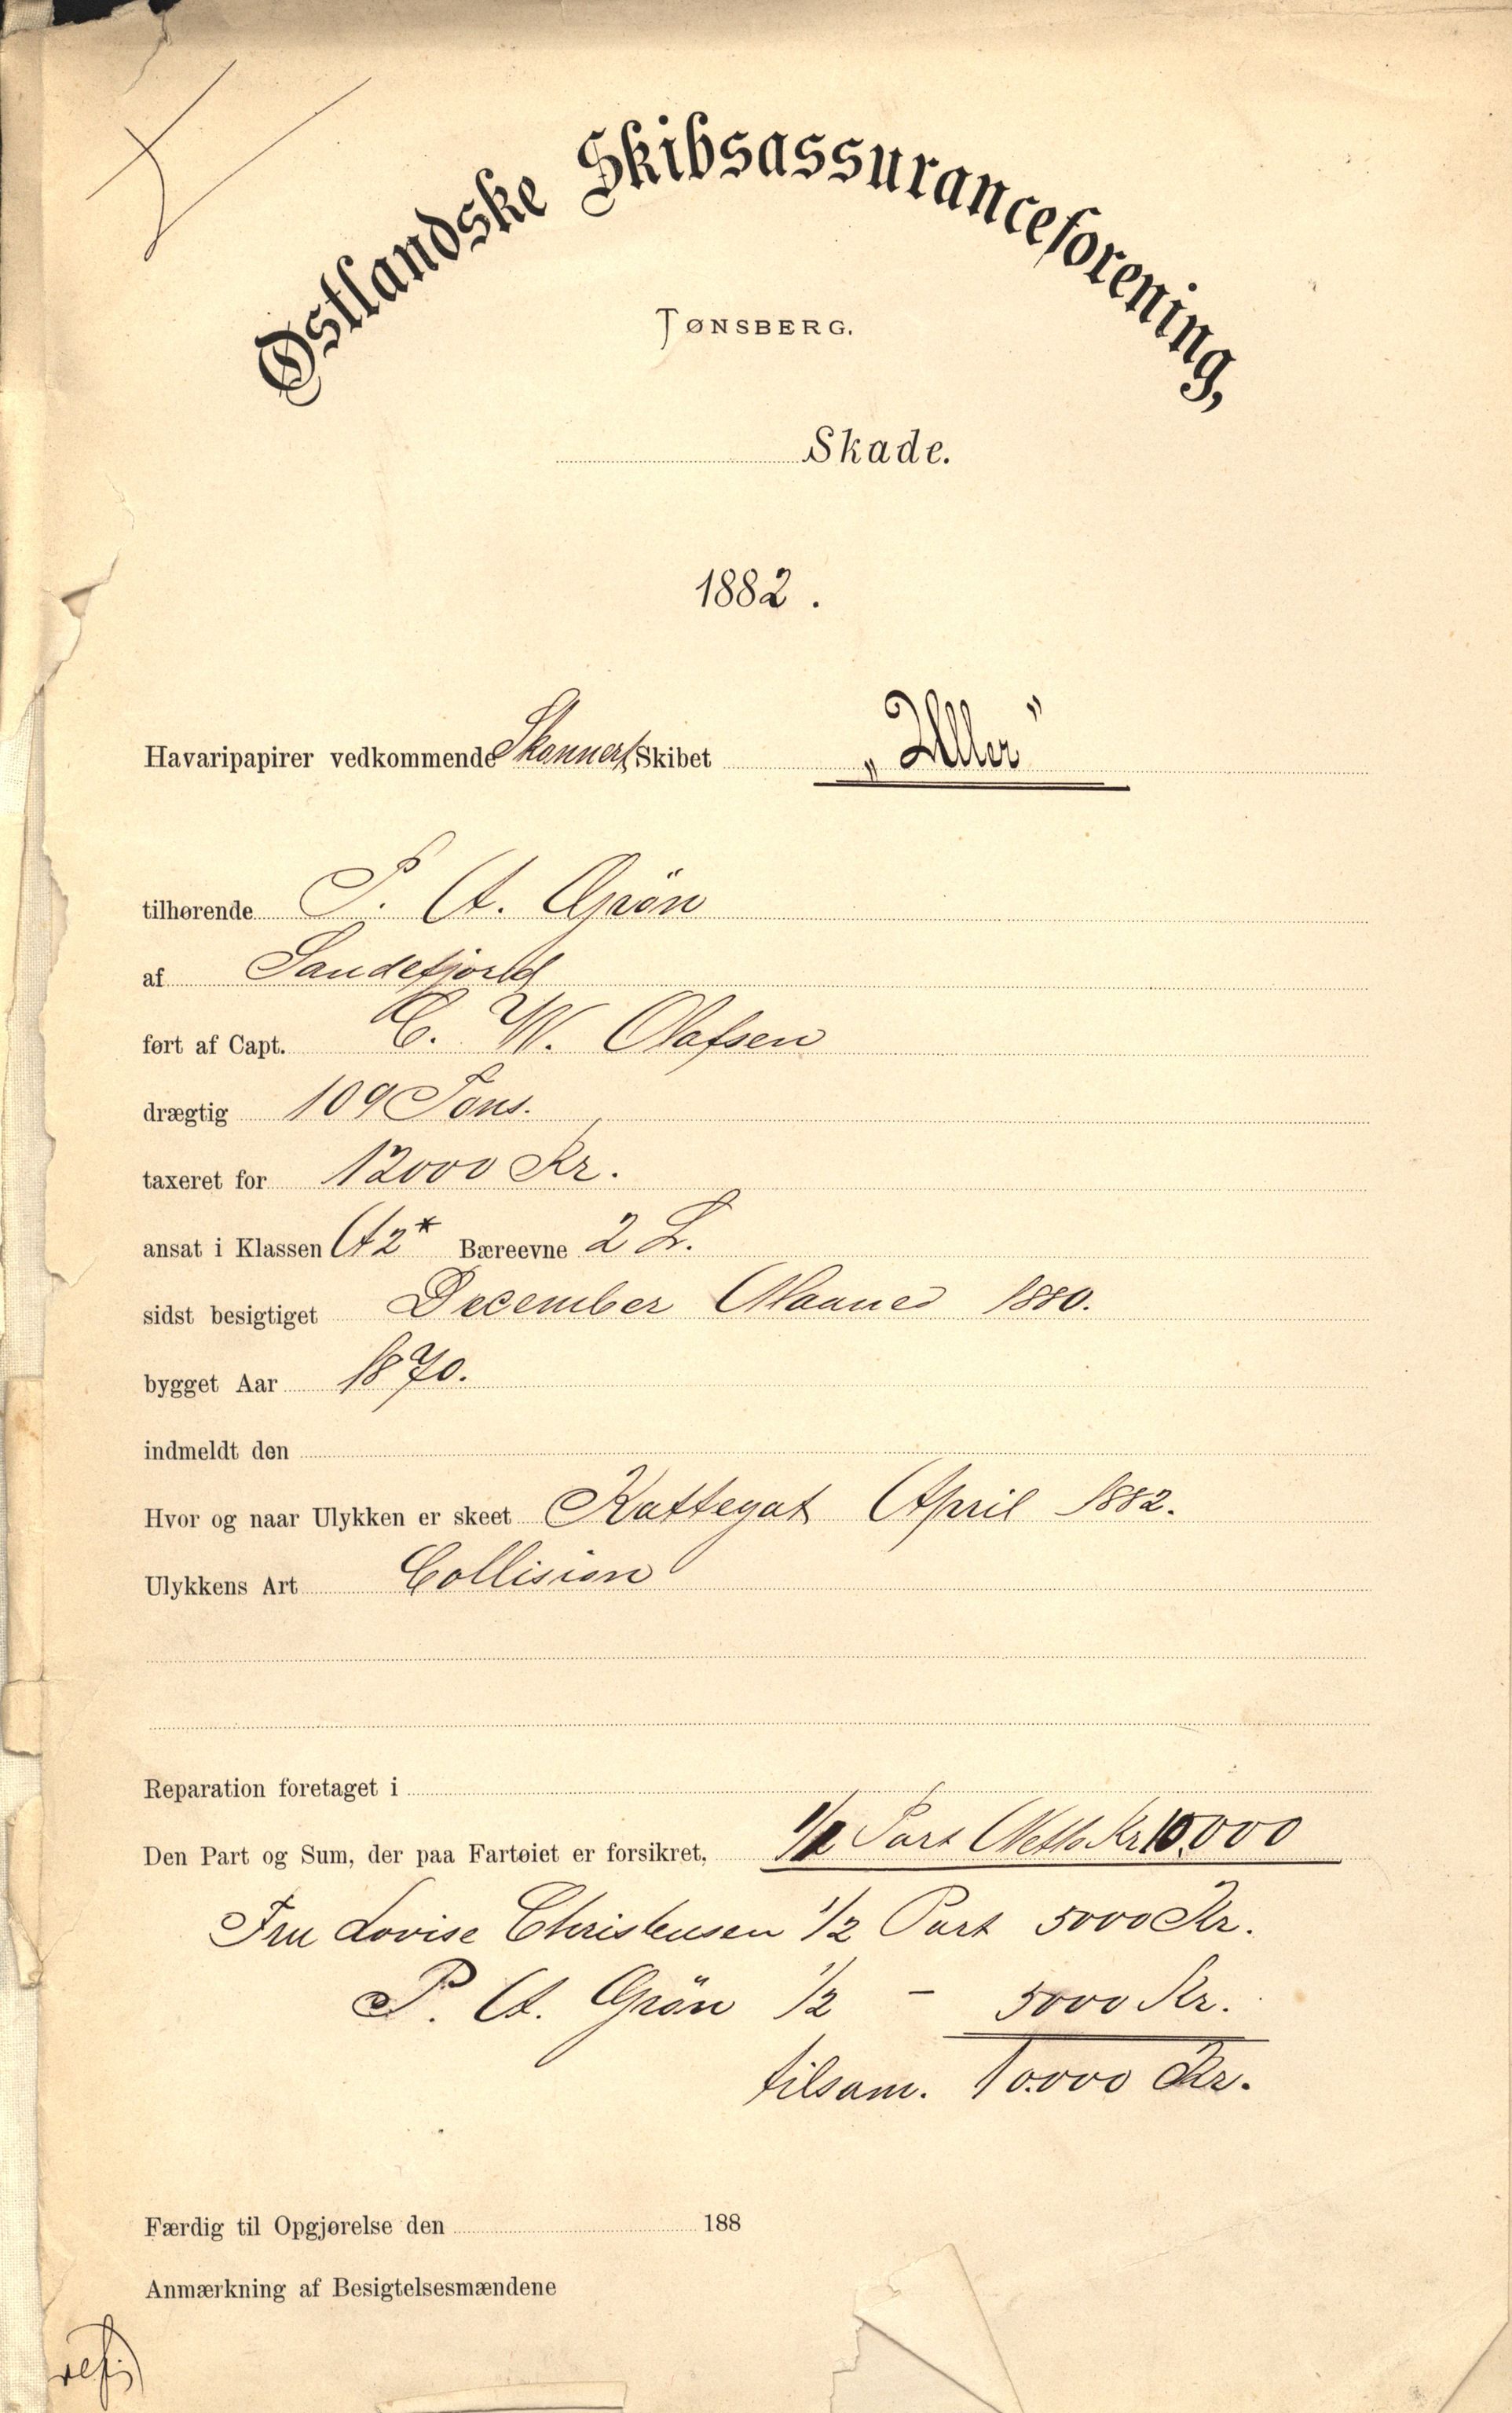 Østlandske Skibsassuranceforening,
TØNSBERG.
Skade.
1882.
Havaripapirer vedkommende Skonnert Skibet „Uller"
tilhørende P. A. Grön
af Sandefjord
ført af Capt. C. W. Olafsen
drægtig 109 Tons.
taxeret for 12000 Kr.
ansat i Klassen A2* Bæreevne 2 L.
sidst besigtiget December Maaned 1880.
bygget Aar 1870.
indmeldt den
Hvor og naar Ulykken er skeet Kattegat April 1882.
Ulykkens Art Collision
Reparation foretaget i
Den Part og Sum, der paa Fartøiet er forsikret, Part Netto Kr 10.000
Fru Lovise Christensen 1/2 Part 5000 Kr.
P. A. Grön 1/2 - 5000 Kr.
tilsam. 10.000 Kr.
Færdig til Opgjørelse den 188
Anmærkning af Besigtelsesmændene